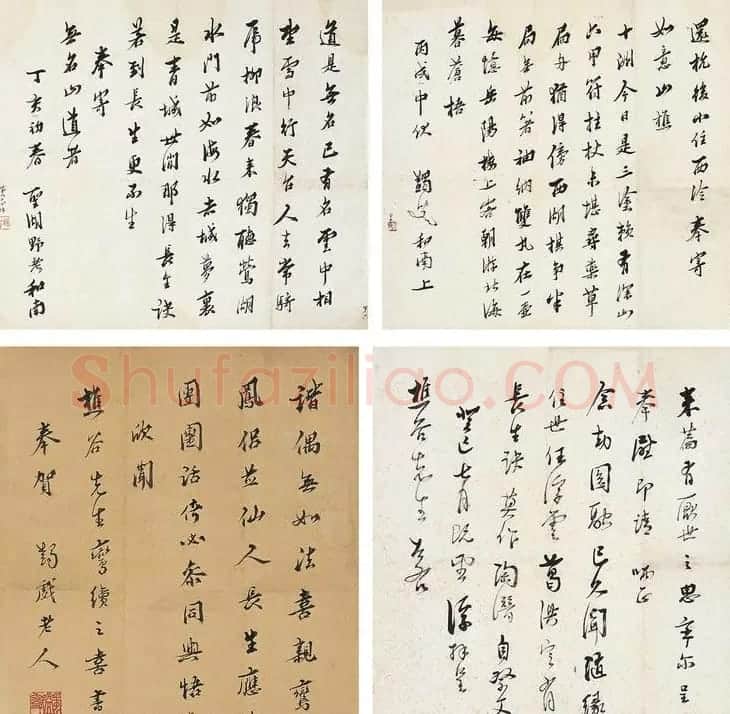 還杭後小住西泠奉寄
如意山樵
十洲今日是三塗賴有深山
六甲符拄杖未堪尋藥草
扁舟猶得傍西湖棋爭半
局無前著袖納雙丸在一壺
每憶岳陽樓上客朝游北海
暮蒼梧
丙戌中伏 蠲叟和南上
道是無名已有名雲中相
雪中行天台人去常騎
虎柳浪春來獨聽鶯湖
水門前如海水赤城夢裏
是青城世間那得長生訣
若到長生更不生
奉寄
無名山道者
丁亥初春 聖湖野老和南
來篇有厭世之思率尔呈
奉酬即請 哂正
念劫圓融已久聞隨緣
住世任浮雲葛洪定有
長生訣莫作陶潛自祭文
癸巳七月既望 浮拜呈
樵谷先生
諧偶無如法喜親鸞
鳳侶並仙人長生應
團圞話倚必參同與悟
欣聞
樵谷先生鸞續之喜書
奉賀 蠲戲老人
Shufaziliao.COM